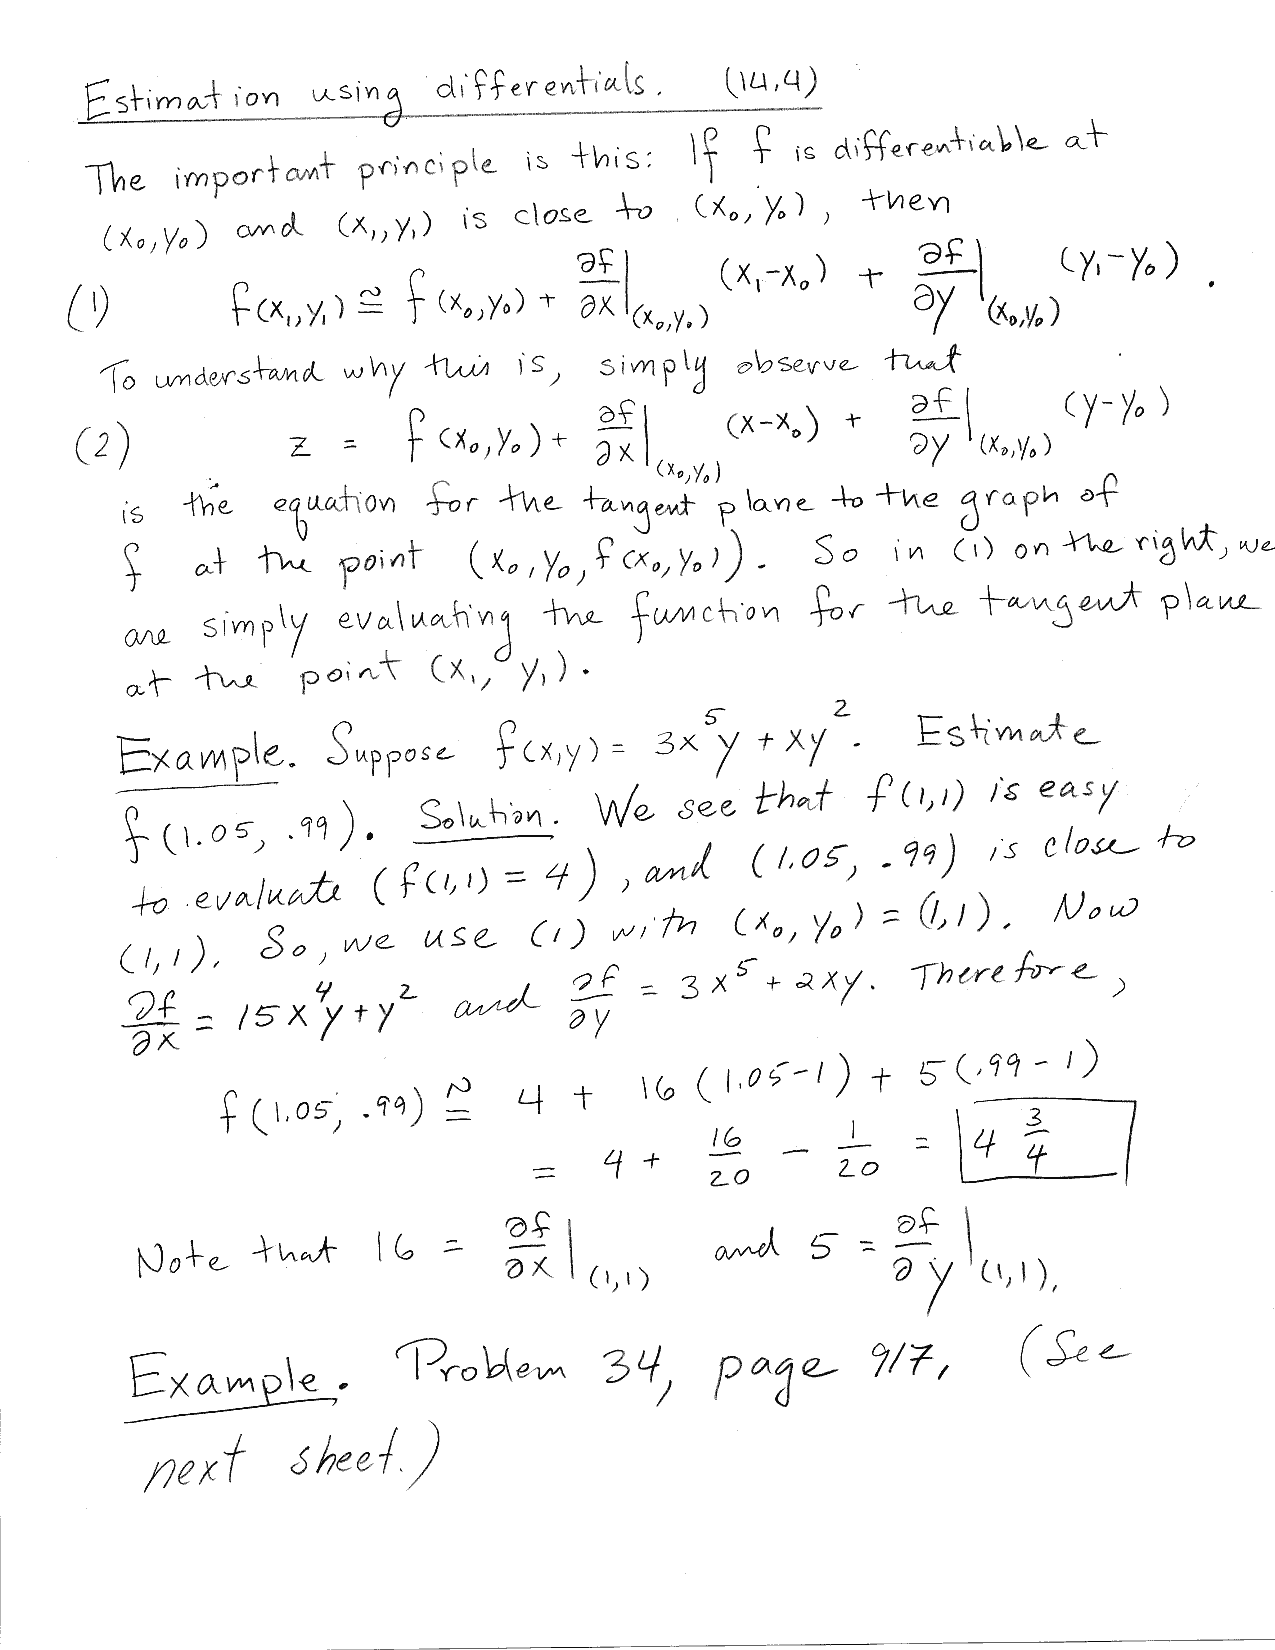 Estimation using differentials. (14.4)
The important principle is this: If f is differentiable at
(x₀,y₀) and (x₁,y₁) is close to (x₀,y₀), then
(1) f(x₁,y₁) ≅ f(x₀,y₀) + ∂f/∂x|(x₀,y₀) (x₁-x₀) + ∂f/∂y|(x₀,y₀) (y₁-y₀).
To understand why this is, simply observe that
(2) z = f(x₀,y₀) + ∂f/∂x|(x₀,y₀) (x-x₀) + ∂f/∂y|(x₀,y₀) (y-y₀)
is the equation for the tangent plane to the graph of
f at the point (x₀,y₀,f(x₀,y₀)). So in (1) on the right, we
are simply evaluating the function for the tangent plane
at the point (x₁,y₁).
Example. Suppose f(x,y) = 3x⁵y + xy². Estimate
f(1.05, .99). Solution. We see that f(1,1) is easy
to evaluate (f(1,1) = 4), and (1.05, .99) is close to
(1,1). So, we use (1) with (x₀,y₀) = (1,1). Now
∂f/∂x = 15x⁴y + y² and ∂f/∂y = 3x⁵ + 2xy. Therefore,
f(1.05, .99) ≅ 4 + 16(1.05-1) + 5(.99-1)
= 4 + 16/20 - 1/20 = 4 3/4
Note that 16 = ∂f/∂x|(1,1) and 5 = ∂f/∂y|(1,1).
Example. Problem 34, page 917, (See
next sheet.)